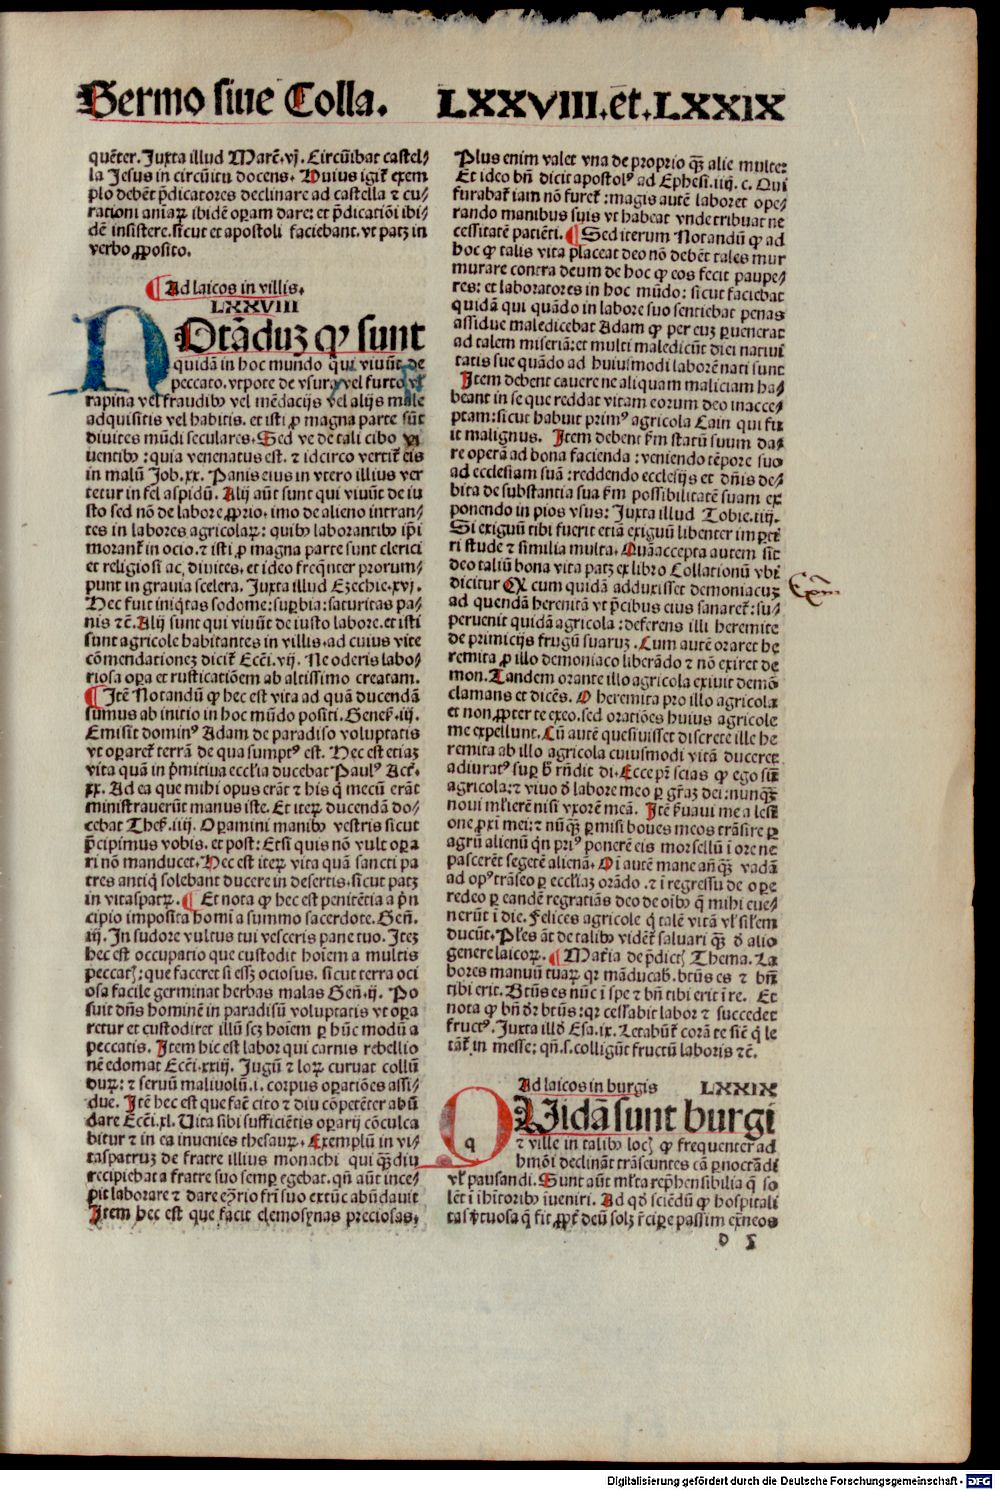 Sermo siue Colla. LXXVIII.et.LXXIX
quēter. Juxta illud Marc̄.vj. Circūibat castel⸗
la Jesus in circūitu docens. Huius igit᷑ exem
plo debēt p̄dicatores declinare ad castella ⁊ cu⸗
rationi aniaꝝ ibidē oꝑam dare: et p̄dicatiōi ibi⸗
dē insistere. sicut et apostoli faciebant. vt patꝫ in
verbo ꝓposito.
¶ Ad laicos in villis.
LXXVIII
NOtāduꝫ ꝙ sunt
quidā in hoc mundo qui viuūt de
peccato. vtpote de vsura vel furto vl̓
rapina vel fraudibꝰ vel mēdacijs vel alijs male
adquisitis vel habitis. et isti ꝓ magna parte sūt
diuites mūdi seculares. Sed ve de tali cibo vi
uentibꝰ: quia venenatus est. ⁊ idcirco vertit᷑ eis
in malū Job.xx. Panis eius in vtero illius ver
tetur in fel aspidū. Alij aūt sunt qui viuūt de iu
sto sed nō de labore ꝓprio. imo de alieno intran⸗
tes in labores agricolaꝝ: quibꝰ laborantibꝰ ip̄i
morant᷑ in ocio. ⁊ isti ꝓ magna parte sunt clerici
et religiosi ac diuites. et ideo freqn̄ter prorum⸗
punt in grauia scelera. Juxta illud Ezechie.xvj.
Hec fuit iniq̇tas sodome: suꝑbia: saturitas pa⸗
nis ⁊c̄. Alij sunt qui viuūt de iusto labore. et isti
sunt agricole habitantes in villis. ad cuius vite
cōmendationeꝫ dicit᷑ Ecc̄i.vij. Ne oderis labo⸗
riosa oꝑa et rusticatiōem ab altissimo creatam.
¶ Itē Notandū ꝙ hec est vita ad quā ducendā
sumus ab initio in hoc mūdo positi. Genes̄.iij.
Emisit dominꝰ Adam de paradiso voluptatis
vt oꝑaret᷑ terrā de qua sumptꝰ est. Hec est etiaꝫ
vita quā in p̄mitiua eccl̓ia ducebat Paulꝰ Act̄.
xx. Ad ea que mihi opus erāt ⁊ his q̇ mecū erāt
ministrauerūt manus iste. Et iteꝝ ducendā do⸗
cebat Thes̄.iiij. Oꝑamini manibꝰ vestris sicut
p̄cipimus vobis. et post: Etsi quis nō vult oꝑa
ri nō manducet. Hec est iteꝝ vita quā sancti pa
tres antiq̇ solebant ducere in desertis. sicut patꝫ
in vitaspatꝝ. ¶ Et nota ꝙ hec est penitētia a p̄n
cipio imposita homī a summo sacerdote. Gen̄.
iij. In sudore vultus tui vesceris pane tuo. Iteꝫ
hec est occupatio que custodit hoīem a multis
peccatꝭ: que faceret si esset ociosus. sicut terra oci
osa facile germinat herbas malas Gen̄.ij. Po
suit dn̄s hominē in paradisū voluptatis vt oꝑa
retur et custodiret illū scꝫ hoīem ꝑ hūc modū a
peccatis. Item hic est labor qui carnis rebellio
nē edomat Ecc̄i.xxiij. Jugū ⁊ loꝝ curuat collū
duꝝ: ⁊ seruū maliuolū.i. corpus oꝑatiōes assi⸗
due. Itē hec est que fac̄ cito ⁊ diu cōpetēter abū
dare Ecc̄i.xl. Uita sibi sufficiētis oꝑarij cōculca
bitur ⁊ in ea inuenies thesauꝝ. Exemplū in vi⸗
taspatruꝫ de fratre illius monachi qui qꝫdiu
recipiebat a fratre suo semꝑ egebat. qn̄ aūt ince⸗
ꝑit laborare ⁊ dare eꝯrio fr̄i suo extūc abūdauit
Item hec est que facit elemosynas preciosas.
Plus enim valet vna de proprio qꝫ alie multe:
Et ideo bn̄ dicit apostolꝰ ad Ephesi.iiij.c. Qui
furabat᷑ iam nō furet᷑: magis autē laboret ope⸗
rando manibus suis vt habeat vnde tribuat ne
cessitatē patiēti. ¶ Sed iterum Notandū ꝙ ad
hoc ꝙ talis vita placeat deo nō debēt tales mur
murare contra deum de hoc ꝙ eos fecit paupe⸗
res: et laboratores in hoc mūdo: sicut faciebat
quidā qui quādo in labore suo sentiebat penas
assidue maledicebat Adam ꝙ per euꝫ ꝑuenerat
ad talem miseriā: et multi maledicūt diei natiui
tatis sue quādo ad huiusmodi laborē nati sunt
Item debent cauere ne aliquam maliciam ha⸗
beant in se que reddat vitam eorum deo inacce⸗
ptam: sicut habuit primꝰ agricola Cain qui fu
it malignus. Item debent s̄m statū suum da⸗
re operā ad bona facienda: veniendo tēpore suo
ad ecclesiam suā: reddendo ecclesijs et dn̄is de⸗
bita de substantia sua s̄m possibilitatē suam ex
ponendo in pios vsus: Juxta illud Tobie.iiij.
Si exiguū tibi fuerit etiā exiguū libenter imꝑti
ri stude ⁊ similia multa. Quā accepta autem sit
deo taliū bona vita patꝫ ex libro Collationū vbi
dicitur EX cum quidā adduxisset demoniacuꝫ
ad quendā heremitā vt p̄cibus eius sanaret᷑: su⸗
peruenit quidā agricola: deferens illi heremite
de primicijs frugū suaruꝫ. Cum autē oraret he
remita ꝓ illo demoniaco liberādo ⁊ nō exiret de
mon. Tandem orante illo agricola exiuit demō
clamans et dicēs. O heremita pro illo agricola
et non ꝓpter te exeo. sed oratiōes huius agricole
me expellunt. Cū autē quesiuisset discrete ille he
remita ab illo agricola cuiusmodi vitā duceret
adiuratꝰ suꝑ h̄ rn̄dit di. Ecce pr̄ scias ꝙ ego suꝫ
agricola: ⁊ viuo d̄ labore meo ꝑ gr̄aꝫ dei: nunqꝫ
noui ml̓ierē nisi vxorē meā. Itē s̓uaui me a lesi
one ꝓxi mei: ⁊ nūqꝫ ꝑmisi boues meos trāsire ꝑ
agrū alienū qn̄ priꝰ ponerē eis morsellū ī ore ne
pascerēt segetē alienā. Oī autē mane an̄qꝫ vadā
ad opꝰ trāseo ꝑ eccl̓iaꝫ orādo. ⁊ ī regressu de oꝑe
redeo ꝑ eandē regratiās deo de oībꝰ q̄ mihi eue⸗
nerūt ī die. Felices agricole q̇ talē vitā vl̓ sil̓em
ducūt. Pl̓es āt de talibꝰ vidēt᷑ saluari qꝫ d̄ alio
genere laicoꝝ. ¶ Mat̓ia de p̄dictꝭ Thema. La
bores manuū tuaꝝ qr māducabꝭ. btūs es ⁊ bn̄
tibi erit. Btūs es nūc ī spe ⁊ bn̄ tibi erit ī re. Et
nota ꝙ bn̄ dr̄ btūs: qr cessabit labor ⁊ succedet
fructꝰ. Juxta illd̓ Esa.ix. Letabūt᷑ corā te sic̄ q̇ le
tāt᷑ in messe: qn̄.s. colligūt fructū laboris ⁊c̄.
Ad laicos in burgis LXXIX
QUidā sunt burgi
q
⁊ ville in talibꝰ locꝭ ꝙ frequenter ad
hm̄oi declināt trāseuntes cā ꝑnoctādi
vl̓ pausandi. Sunt aūt ml̓ta rep̄hensibilia q̄ so⸗
lēt ī ih̄itoribꝰ īueniri. Ad qd̓ sciēdū ꝙ hospitali
tas v̓tuosa q̄ fit ꝓpt̓ deū solꝫ r̄ciꝑe passim ex̄neos